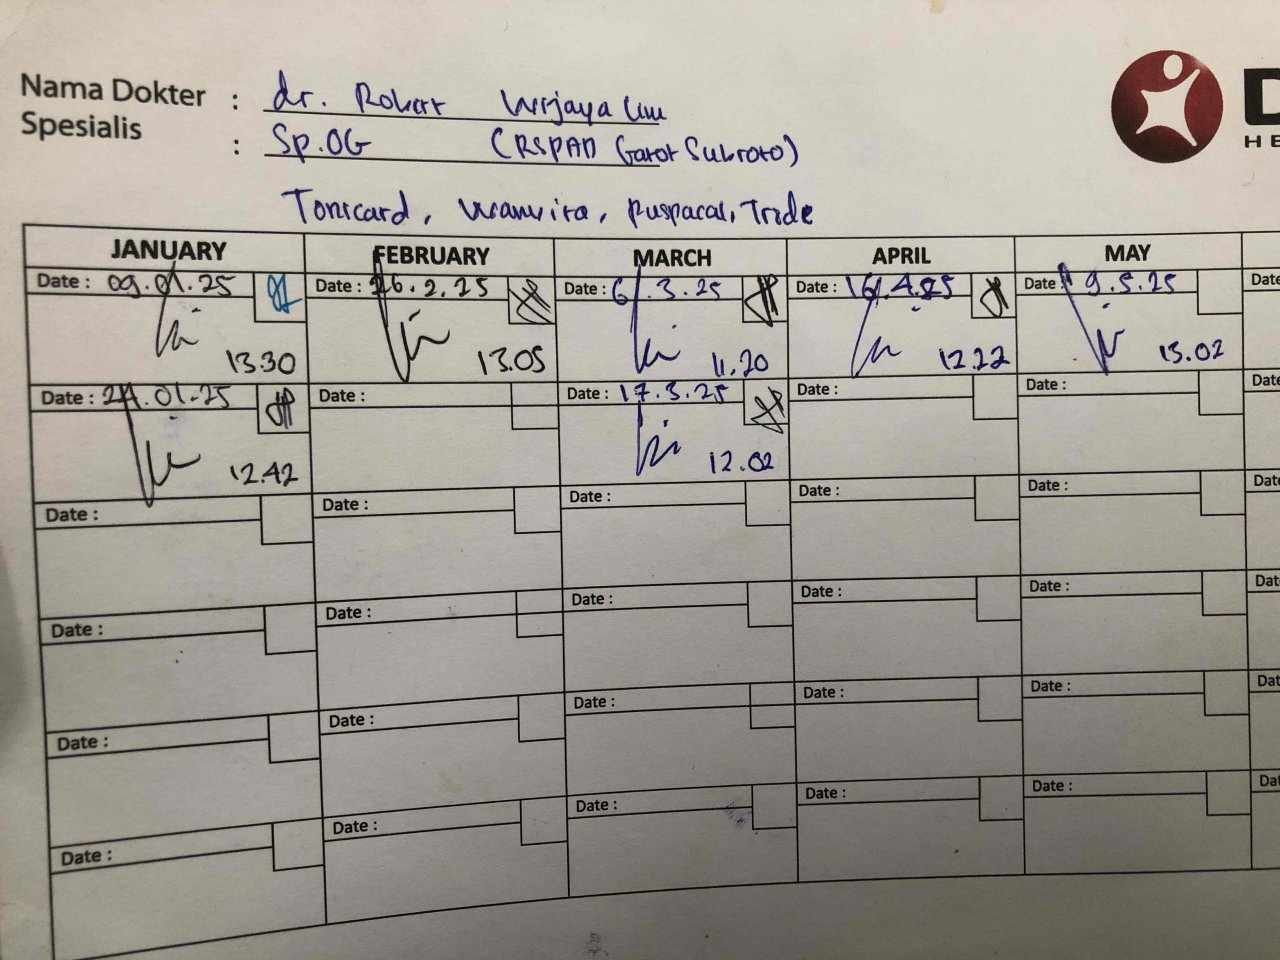 Nama Dokter : dr. Robert Wijaya
Spesialis : Sp.OG (RSPAD Gatot Subroto)
Tonicard, Tride
D
HE
JANUARY FEBRUARY MARCH APRIL MAY
Date : 09.01.25 Date : 26.2.25 Date : 6.3.25 Date : 16.4.25 Date : 9.5.25 Date
13.30 13.05 11.20 12.22 13.02
Date : 24.01.25 Date : Date : 17.3.25 Date : Date : Date
12.42 12.02
Date : Date : Date : Date : Date : Date
Date : Date : Date : Date : Date : Date
Date : Date : Date : Date : Date : Dat
Date : Date : Date : Date : Date : Da